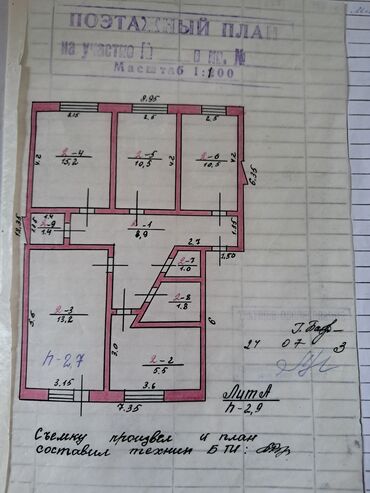 ПОЭТАЖНЫЙ ПЛАН
на участке в мс. №
Масштаб 1:100
8.95
3.15 2.5 2.5
4.2 4.2 4.2
2-4
15,2
2-5
10,5
2-6
10,5
6.35
12.35
1.4
2-9
1.4
2-1
2.7
1.55
1.50
2-7
1.0
2-8
1.8
2-3
13,2
5.6
h-2,7
3.0
2-2
5.5
6
3.15 3.6
7.35
24 07 3
Лит А
h-2,9
Съемку произвел и план
составил техник БТИ: